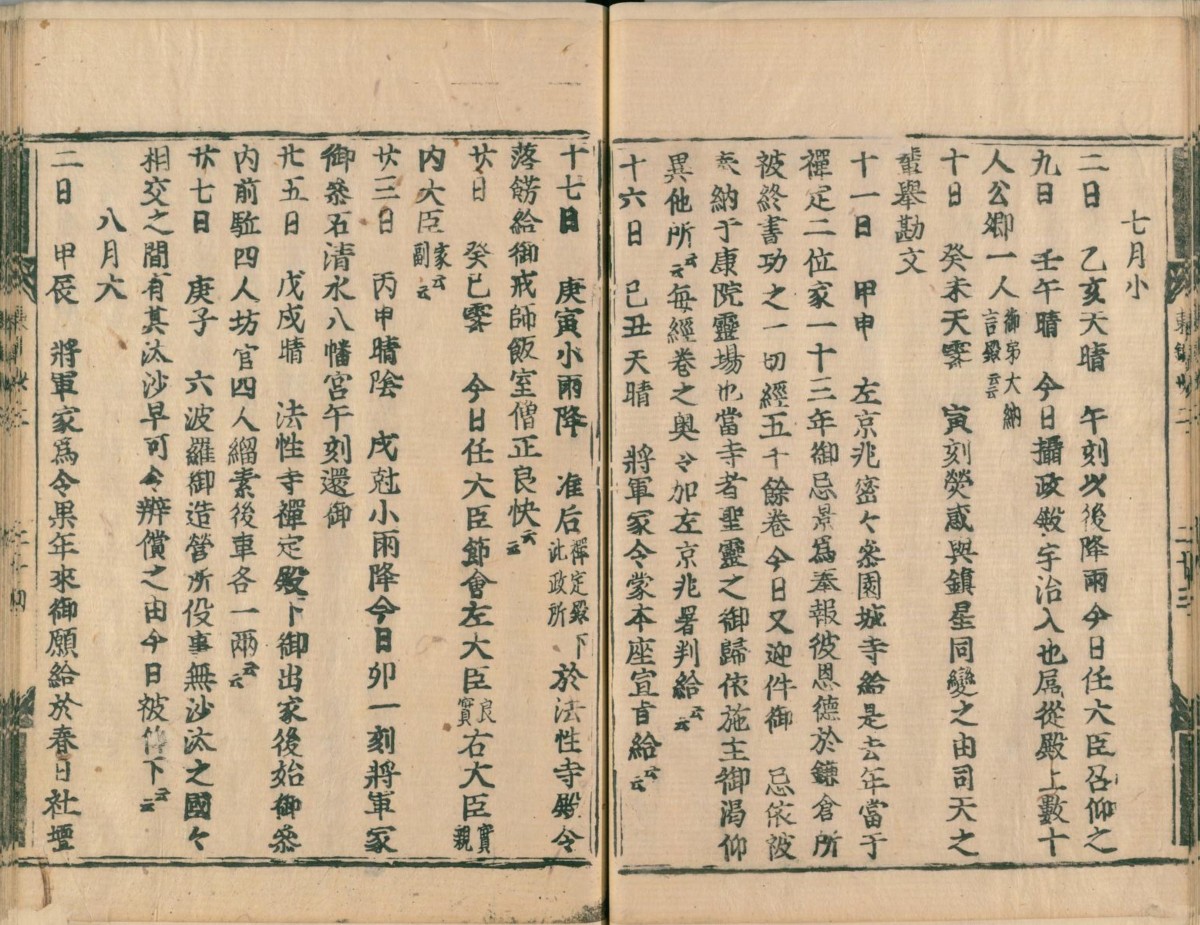 七月小
二日　乙亥天晴　午刻以後降雨今日任大臣召仰之
九日　壬午晴　今日攝政殿宇治入也扈從殿上數十
人公卿一人御弟大納言殿云云
十日　癸未天霽　寅刻熒惑與鎮星同變之由司天之
輩擧勘文
十一日　甲申　左京兆密々參園城寺給是去年當于
禪定二位家一十三年御忌景爲奉報彼恩德於鎌倉所
被終書功之一切經五千餘卷今日又迎件御　忌依被
奉納于康院靈場也當寺者聖靈之御歸依施主御渇仰
異他所云云每經卷之奥令加左京兆署判給云云
十六日　己丑天晴　將軍家令蒙本座宣旨給云云
十七日　庚寅小雨降　准后禪定殿下此政所於法性寺殿令
落餝給御戒師飯室僧正良快云云
廿日　癸巳霽　今日任大臣節會左大臣良實右大臣實親
内大臣家云副云
廿三日　丙申晴陰　戌尅小雨降今日卯一刻將軍家
御參石清水八幡宮午刻還御
廿五日　戊戌晴　法性寺禪定殿下御出家後始御參
内前駈四人坊官四人緇素後車各一兩云云
廿七日　庚子　六波羅御造營所役事無沙汰之國々
相交之間有其汰沙早可令辨償之由今日被仰下云云
八月大
二日　甲辰　將軍家爲令果年來御願給於春日社壇